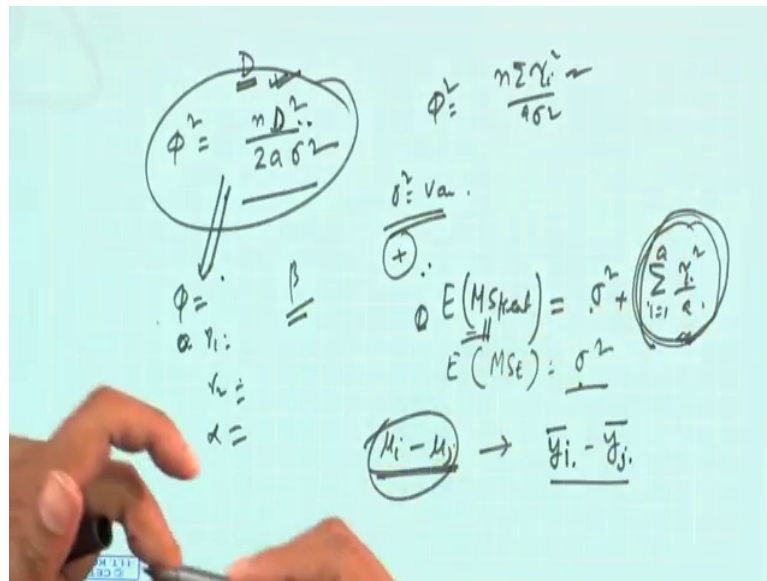 D
Φ² = nD² / 2aσ²
Φ² = nΣτi² / aσ²
σ² = Var.
+
Φ =
β
a
ν1 =
ν2 =
α =
E(MSTreat) = σ² + Σ i=1 a τi² / a
E(MSE) = σ²
μi - μj → ȳi. - ȳj.
I.I.T. K